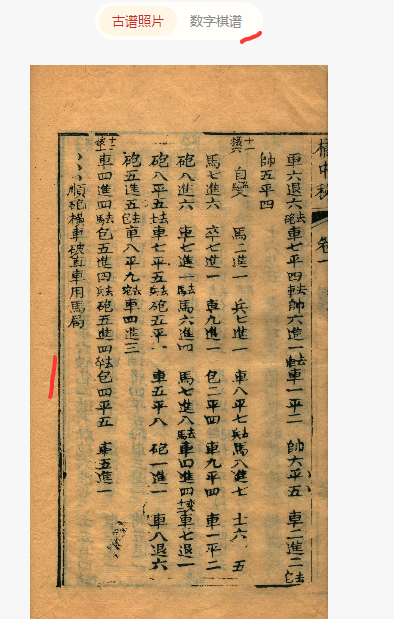 古谱照片 数字棋谱
橘中秘 卷一
車六退六去砲 車七平四去車 帥六進一去車 車一平二 帥六平五 車二進二去包
帥五平四
十一變 自變 馬二進一 兵七進一 車八平七去兵 馬八進七 士六 五
馬七進六 卒七進一 車九進一 包二平四 車九平四 車一平二
砲八進六 車七進一去馬 馬六進四 馬七進八去馬 車四進四十二變 車七退一
砲八平五去士 車七平五去兵 砲五平 車五平八 砲一進一 車八退六
砲五進五去包 車八平九去砲 車四進三
十二變 車四進四去馬 包五進四去兵 砲五進四去卒 包四平五 車五進一
順砲橫車破直車用馬局